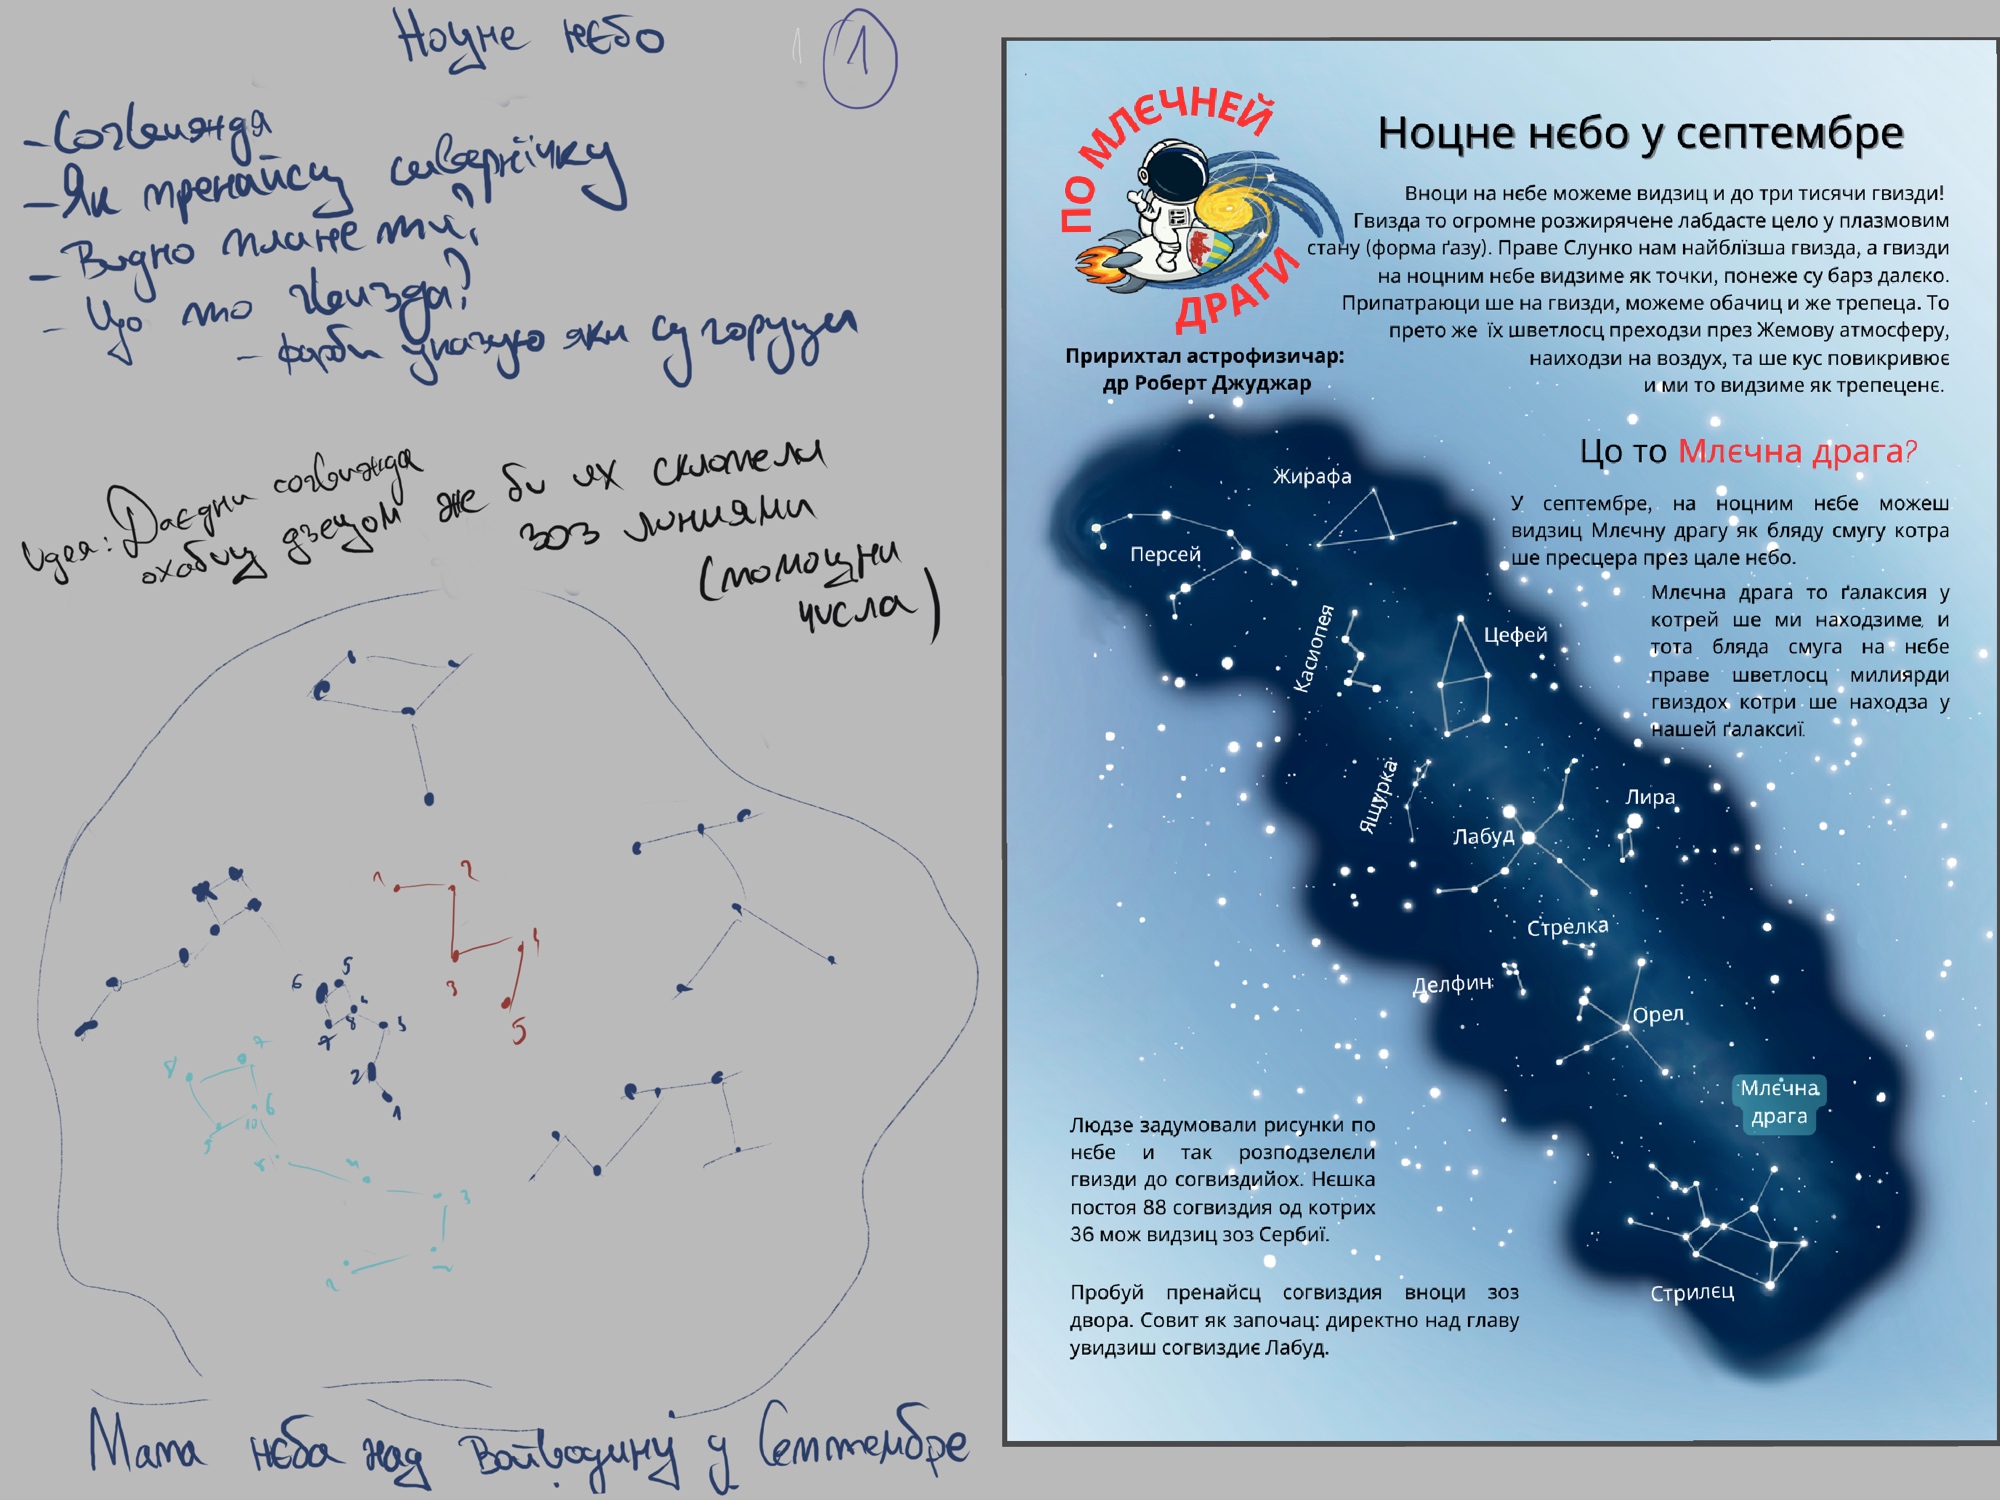 Ноцне нєбо
1
- Согвиязда
- Як пренайсц сивернїчку
- Видно планети?
- Цо то гвизда?
- фарби указую яки су горуци
Идея: Даєдни согвиязда
охабиц дзецом же би их склопели
зоз линиями
(помоцни
числа)
1 2 3 4 5
6 5 4 8 7 3 2 1
8 7 6 10 9 5 4 3 2 1
Мапа нєба над Войводину у Септембре
ПО МЛЄЧНЕЙ
ДРАГИ
Пририхтал астрофизичар:
др Роберт Джуджар
Ноцне нєбо у септембре
Вноци на нєбе можеме видзиц и до три тисячи гвизди!
Гвизда то огромне розжирячене лабдасте цело у плазмовим
стану (форма ґазу). Праве Слунко нам найблїзша гвизда, а гвизди
на ноцним нєбе видзиме як точки, понеже су барз далєко.
Припатраюци ше на гвизди, можеме обачиц и же трепеца. То
прето же їх шветлосц преходзи през Жемову атмосферу,
наиходзи на воздух, та ше кус повикривює
и ми то видзиме як трепеценє.
Цо то Млєчна драга?
У септембре, на ноцним нєбе можеш
видзиц Млєчну драгу як бляду смугу котра
ше пресцера през цале нєбо.
Млєчна драга то ґалаксия у
котрей ше ми находзиме, и
тота бляда смуга на нєбе
праве шветлосц милиярди
гвиздох котри ше находза у
нашей ґалаксиї.
Жирафа
Персей
Касиопея
Цефей
Ящурка
Лира
Лабуд
Стрелка
Делфин
Орел
Млєчна
драга
Стрилєц
Людзе задумовали рисунки по
нєбе и так розподзелєли
гвизди до согвиздийох. Нєшка
постоя 88 согвиздия од котрих
36 мож видзиц зоз Сербиї.
Пробуй пренайсц согвиздия вноци зоз
двора. Совит як започац: директно над главу
увидзиш согвиздиє Лабуд.